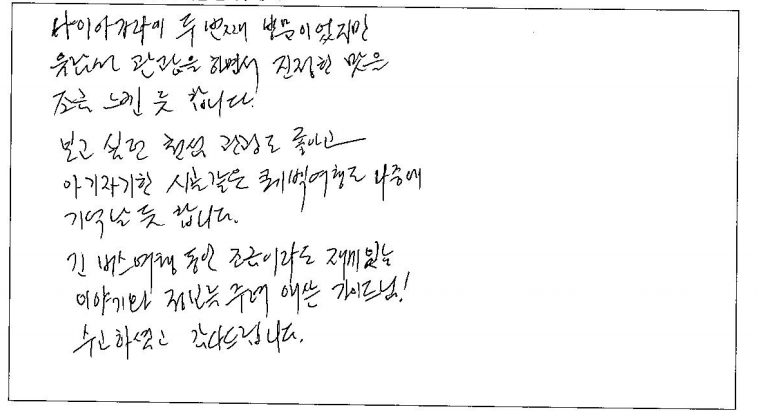 나이아가라에 두 번째 방문이었지만
유람선 관광을 하면서 진정한 맛을
조금 느낀 듯 합니다.
보고 싶던 천섬 관광도 좋아고
아기자기한 시골같은 퀘벡여행도 나중에
기억날 듯 합니다.
긴 버스여행 동안 조금이라도 재미있는
이야기와 정보를 주려 애쓰는 가이드님!
수고하셨고 감사드립니다.